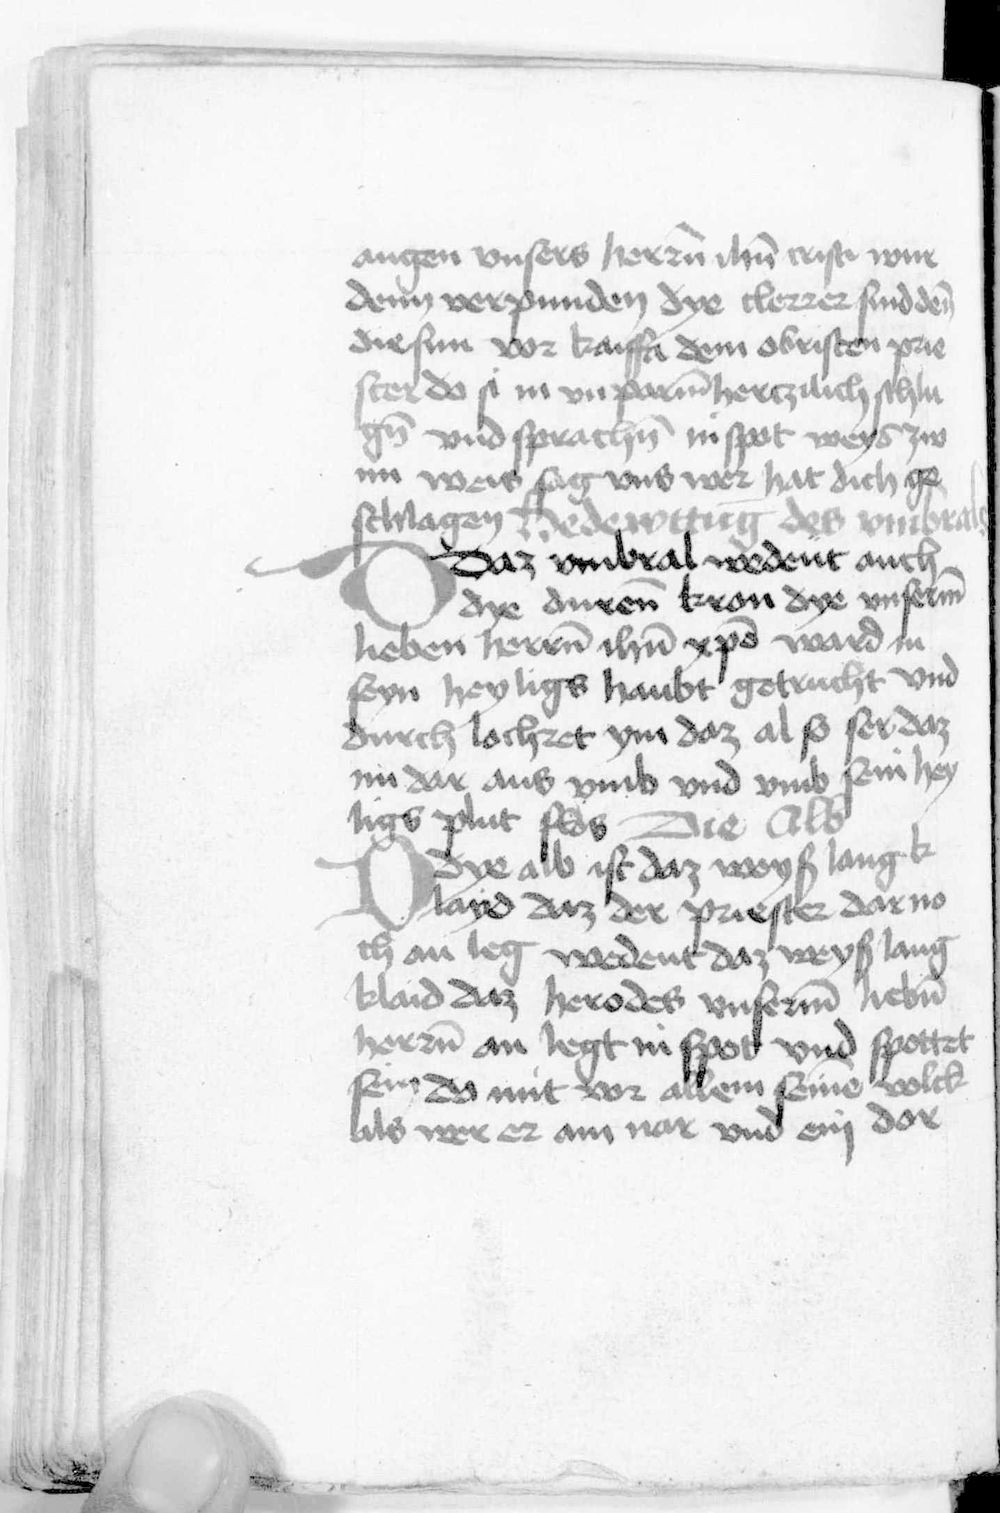 augen vnsers herrn̄ ih̄u cristi wur
denn verpunden dye clerrer sind den̄
die sun vor kaiffa dem obristen prie
ster do si in vn parm̄hertzilich schlu
gn̄ vnd sprachn̄ in spot weys zw
im weis sag vns wer hat dich ge
schlagen Bedewttūg des vmbrals
Daz vmbral wedeut auch
dye duren̄ kron dye vnserm̄
lieben herrn̄ ih̄u xp̄o ward in
seyn heyligs haubt getrucht vnd
durch lochret ym daz al so ser daz
im dar aus vmb vnd vmb sein hey
ligs plut flos Die Alb
Dye alb ist daz weyß lang k
layd daz der priester dar no
ch an leg wedeut daz weyß lang
klaid daz herodes vnserm̄ liebn̄
herrn̄ an legt in spot vnd spottet
sein do mit vor allem seinē volck
als wer er am nar vnd ein dor